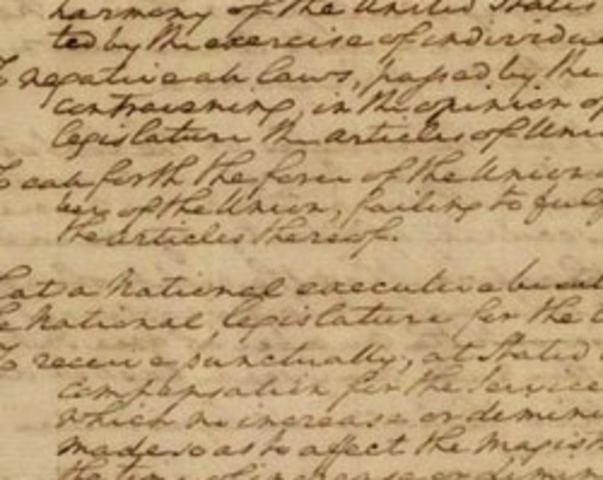 harmony of the United States
ted by the exercise of individua
To negative all laws, passed by the
contravening, in the opinion of
legislature the articles of Uni
To call forth the force of the Union
ber of the Union, failing to fulf
the articles thereof.
hat a National executive be
e National legislature for the
To receive punctually, at stated
compensation for the service
which no increase or diminu
made so as to affect the Magist
the time of increase or dimin